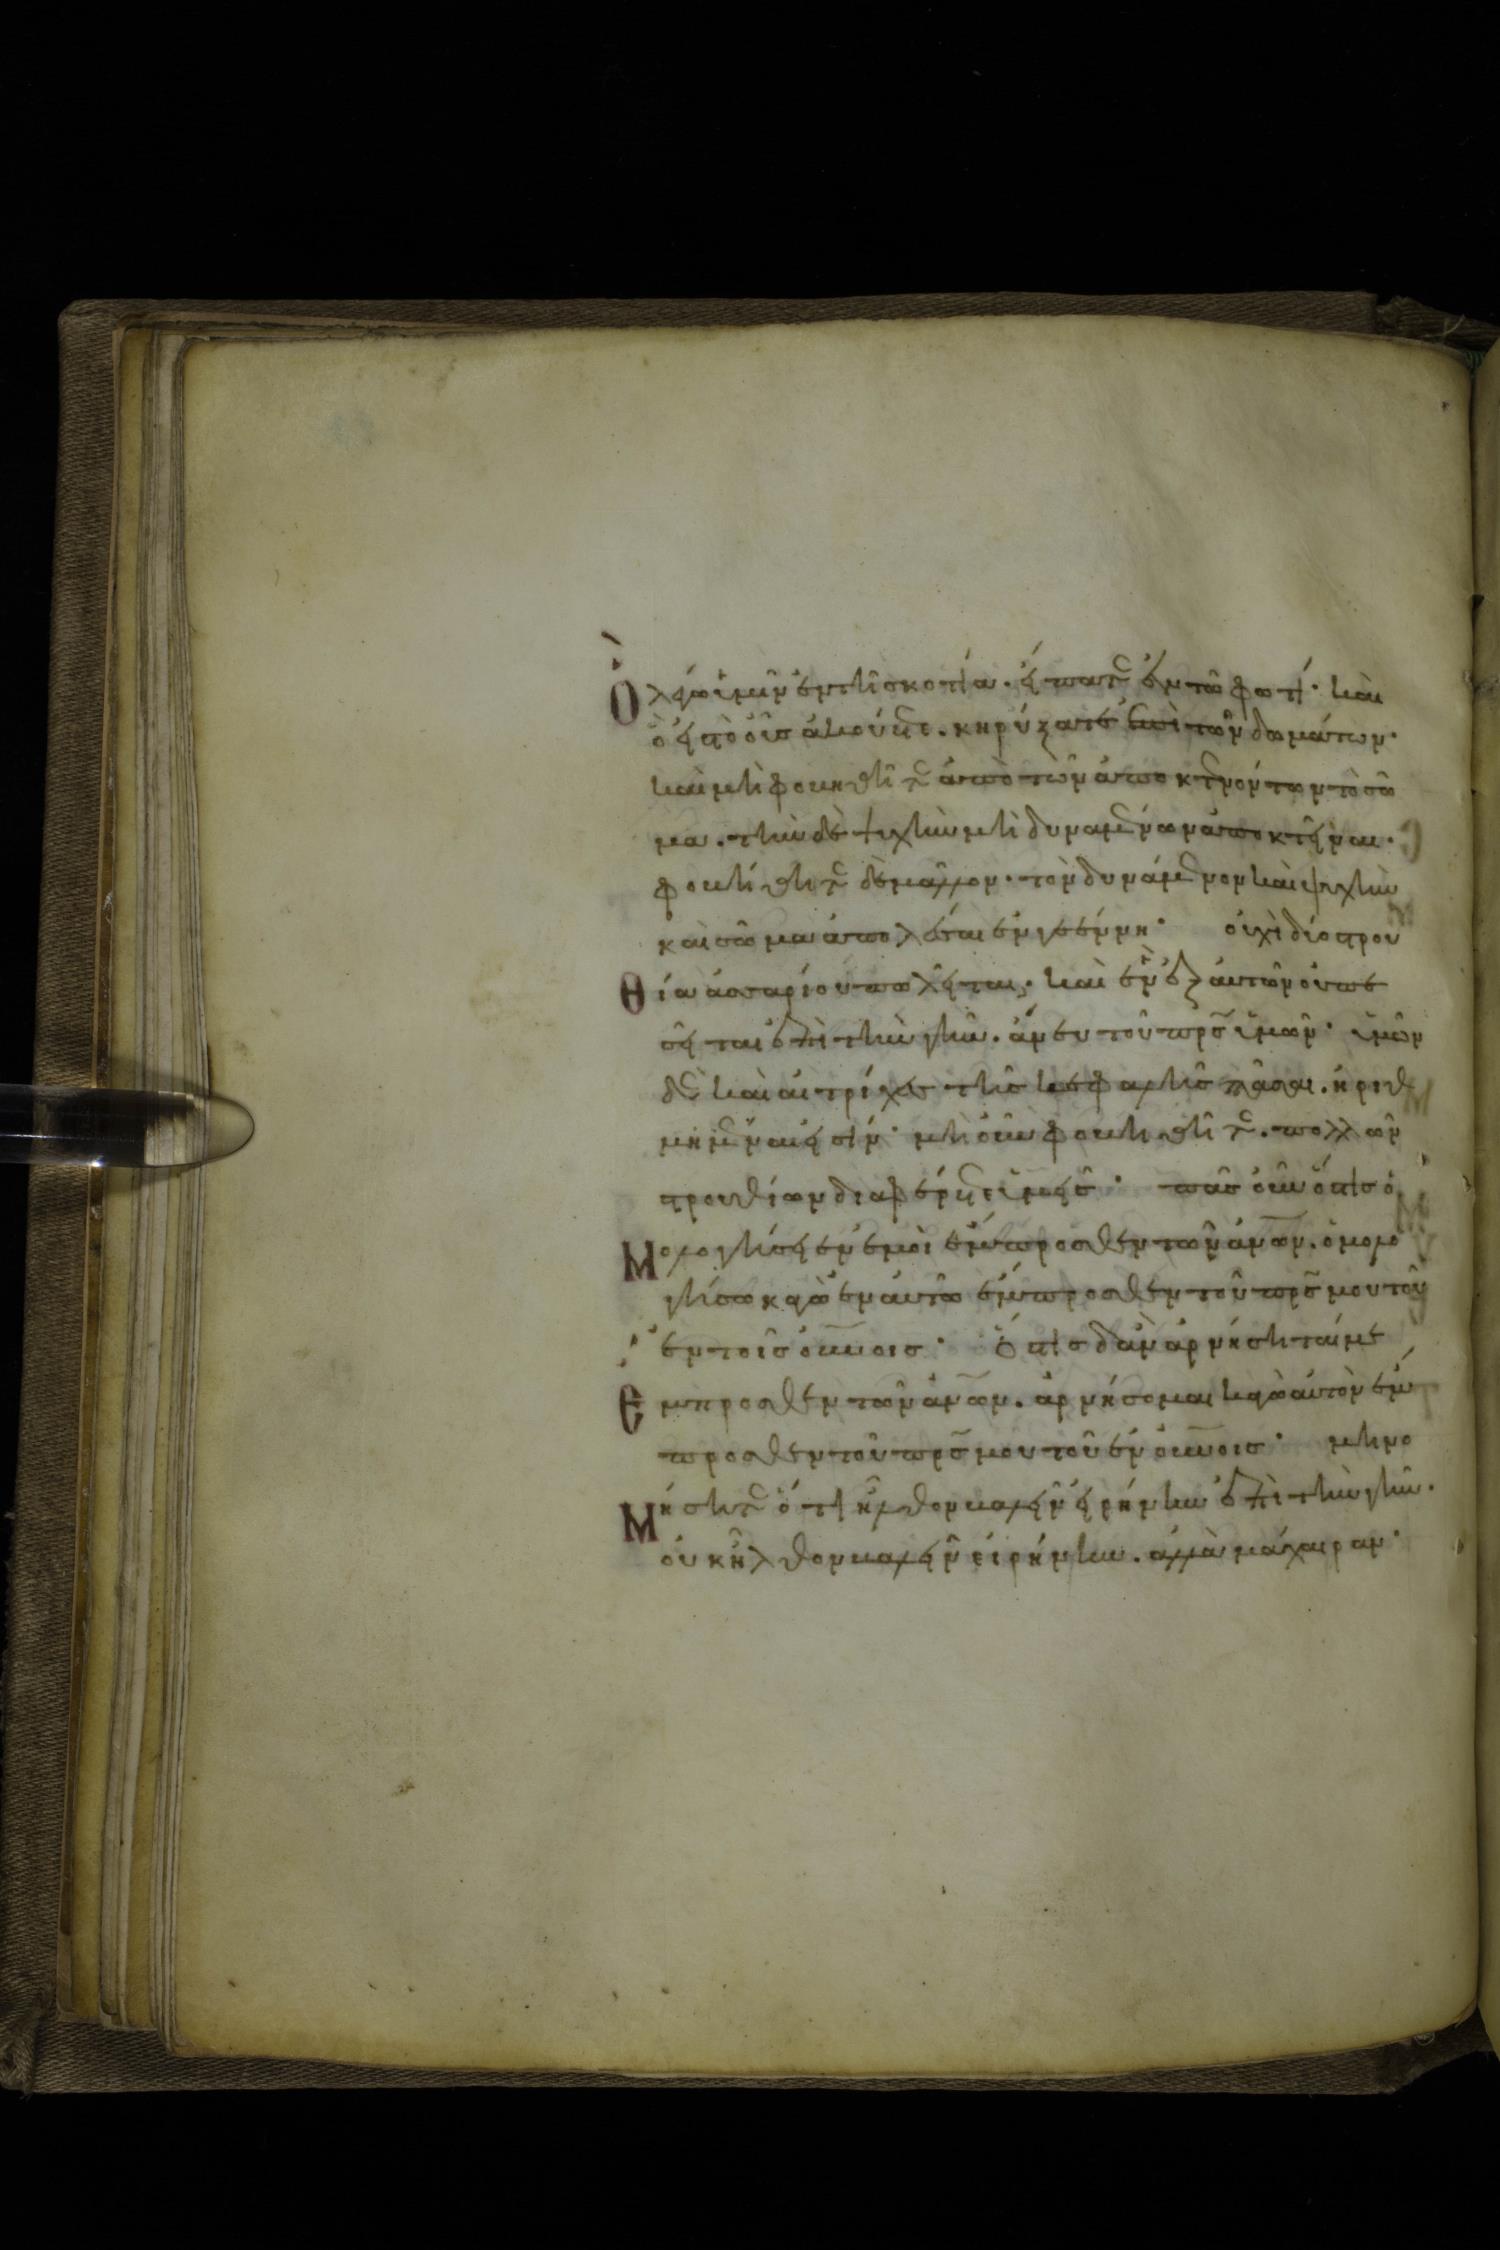 Ὃ λέγω ὑμῖν ἐν τῆ σκοτία. εἴπατε ἐν τῶ φωτί· καὶ
ὃ εἰς τὸ οὖς ἀκούετε. κηρύξατε ἐπὶ τῶν δωμάτων·
καὶ μὴ φοβηθῆτε ἀπὸ τῶν ἀποκτενόντων τὸ σῶ
μα. τὴν δὲ ψυχὴν μὴ δυναμένων ἀποκτεῖναι·
φοβήθητε δὲ μᾶλλον. τὸν δυνάμενον καὶ ψυχὴν
καὶ σῶμα ἀπολέσαι ἐν γεέννη· οὐχὶ δύο στρου
θία ἀσσαρίου πωλεῖται· καὶ ἓν ἐξ αὐτῶν οὐ πε
σεῖται ἐπὶ τὴν γῆν. ἄνευ τοῦ πρς ὑμῶν· ὑμῶν
δὲ καὶ αἱ τρίχες τῆς κεφαλῆς πᾶσαι. ἠριθ
μημέναι εἰσίν· μὴ οὖν φοβηθῆτε. πολλῶν
στρουθίων διαφέρετε ὑμεῖς· πᾶς οὖν ὅστις ὁ
μολογήσει ἐν ἐμοὶ ἔμπροσθεν τῶν ἀνων. ὁμολο
γήσω κἀγὼ ἐν αὐτῶ ἔμπροσθεν τοῦ πρς μου τοῦ
ἐν τοῖς οὐνοις· Ὅστις δ' ἂν ἀρνήσηταί με
ἔμπροσθεν τῶν ἀνων. ἀρνήσομαι κἀγὼ αὐτὸν ἔμ
προσθεν τοῦ πρς μου τοῦ ἐν οὐνοις· μὴ νο
μίσητε ὅτι ἦλθον βαλεῖν εἰρήνην ἐπὶ τὴν γῆν.
οὐκ ἦλθον βαλεῖν εἰρήνην. ἀλλὰ μάχαιραν·